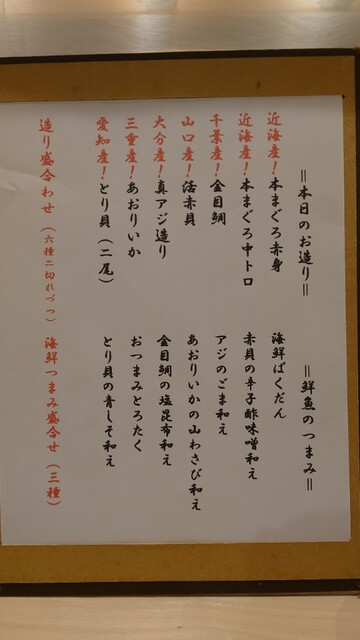 ＝本日のお造り＝
近海産！本まぐろ赤身
近海産！本まぐろ中トロ
千葉産！金目鯛
山口産！活赤貝
大分産！真アジ造り
三重産！あおりいか
愛知産！とり貝（二尾）
造り盛合わせ（六種二切れづつ）
＝鮮魚のつまみ＝
海鮮ばくだん
赤貝の辛子酢味噌和え
アジのごま和え
あおりいかの山わさび和え
金目鯛の塩昆布和え
おつまみとろたく
とり貝の青しそ和え
海鮮つまみ盛合せ（三種）